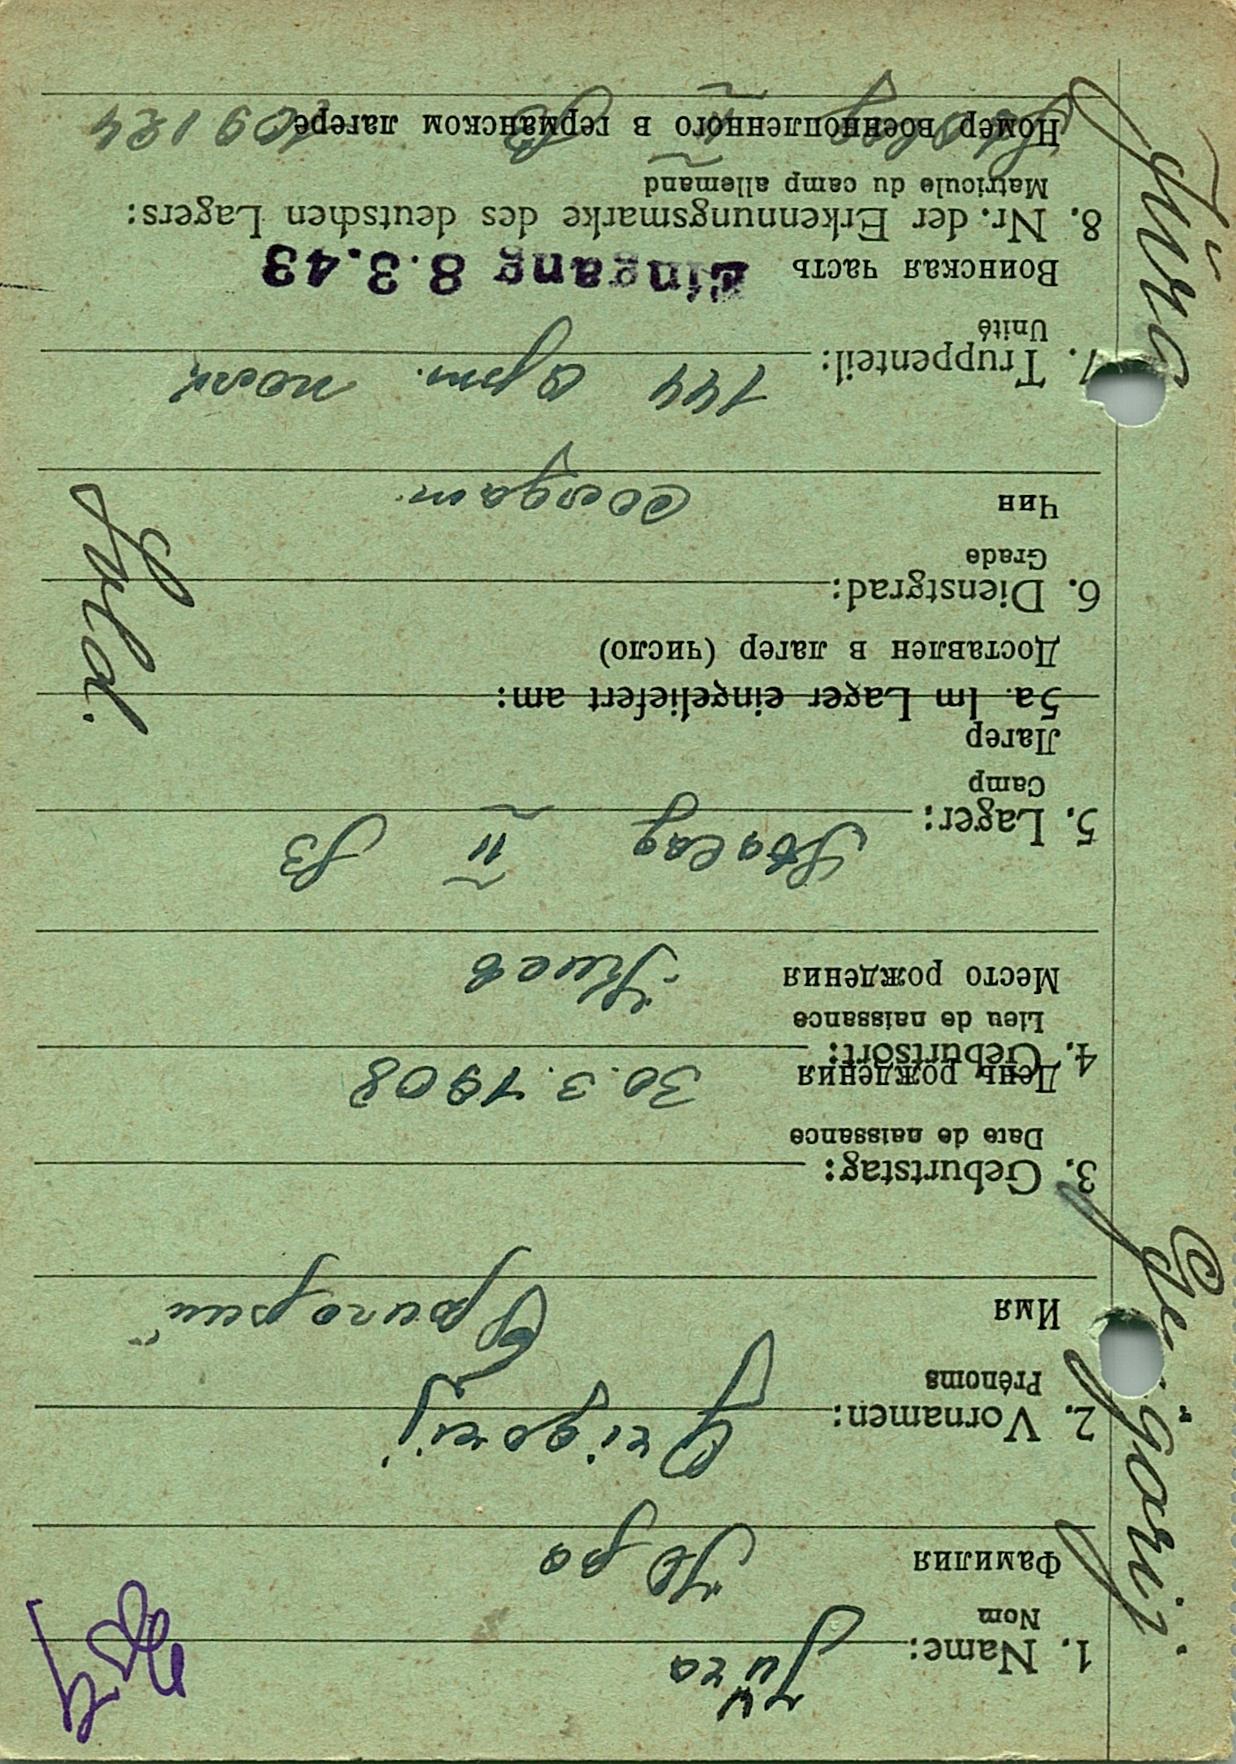 1. Name: Jüra
Nom
Фамилия Юра
2. Vornamen: Grigorij
Prénoms
Имя Григорий
3. Geburtstag:
Date de naissance
День рождения 30.3.1908
4. Geburtsort:
Lieu de naissance
Место рождения Киев
5. Lager: Stalag II B
Camp
Лагер
5a. Im Lager eingeliefert am:
Доставлен в лагер (число)
6. Dienstgrad:
Grade
Чин солдат
Sold.
7. Truppenteil: 144 арт. полк
Unité
Воинская часть Eingang 8.3.43
8. Nr. der Erkennungsmarke des deutschen Lagers:
Matricule du camp allemand
Номер военнопленного в германском лагере
Stalag II B 109124
Jüra
Grigorij.